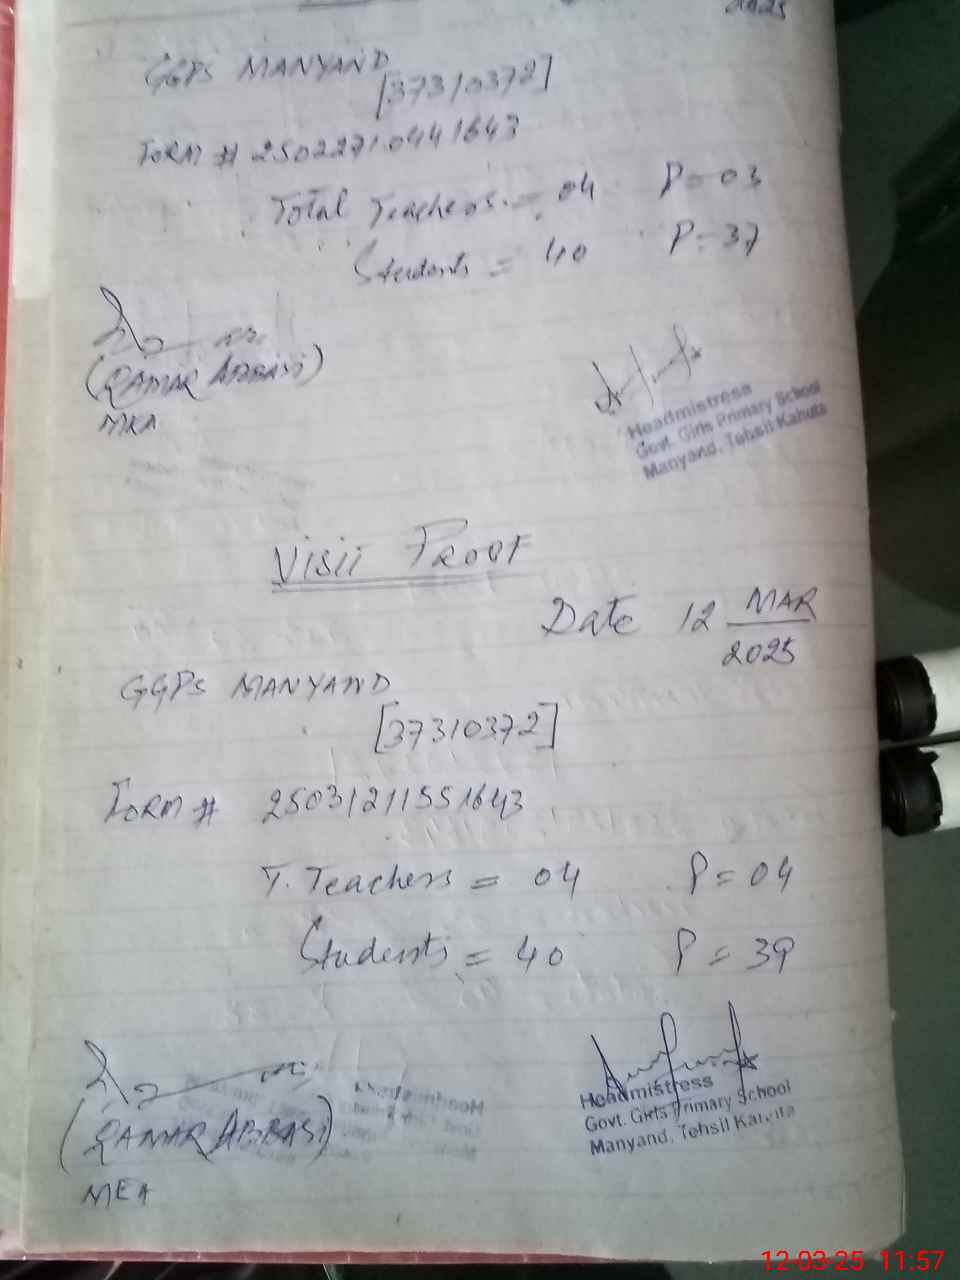 2025
GGPS MANYAND
[37310372]
FORM # 25022710441643
Total Teachers = 04 P = 03
Students = 40 P = 37
(QAMAR ABBASI)
MEA
Headmistress
Govt. Girls Primary School
Manyand, Tehsil Kahuta
Visit Proof
Date 12 MAR
2025
GGPS MANYAND
[37310372]
FORM # 25031211551643
T. Teachers = 04 P = 04
Students = 40 P = 39
(QAMAR ABBASI)
MEA
Headmistress
Govt. Girls Primary School
Manyand, Tehsil Kahuta
12-03-25 11:57